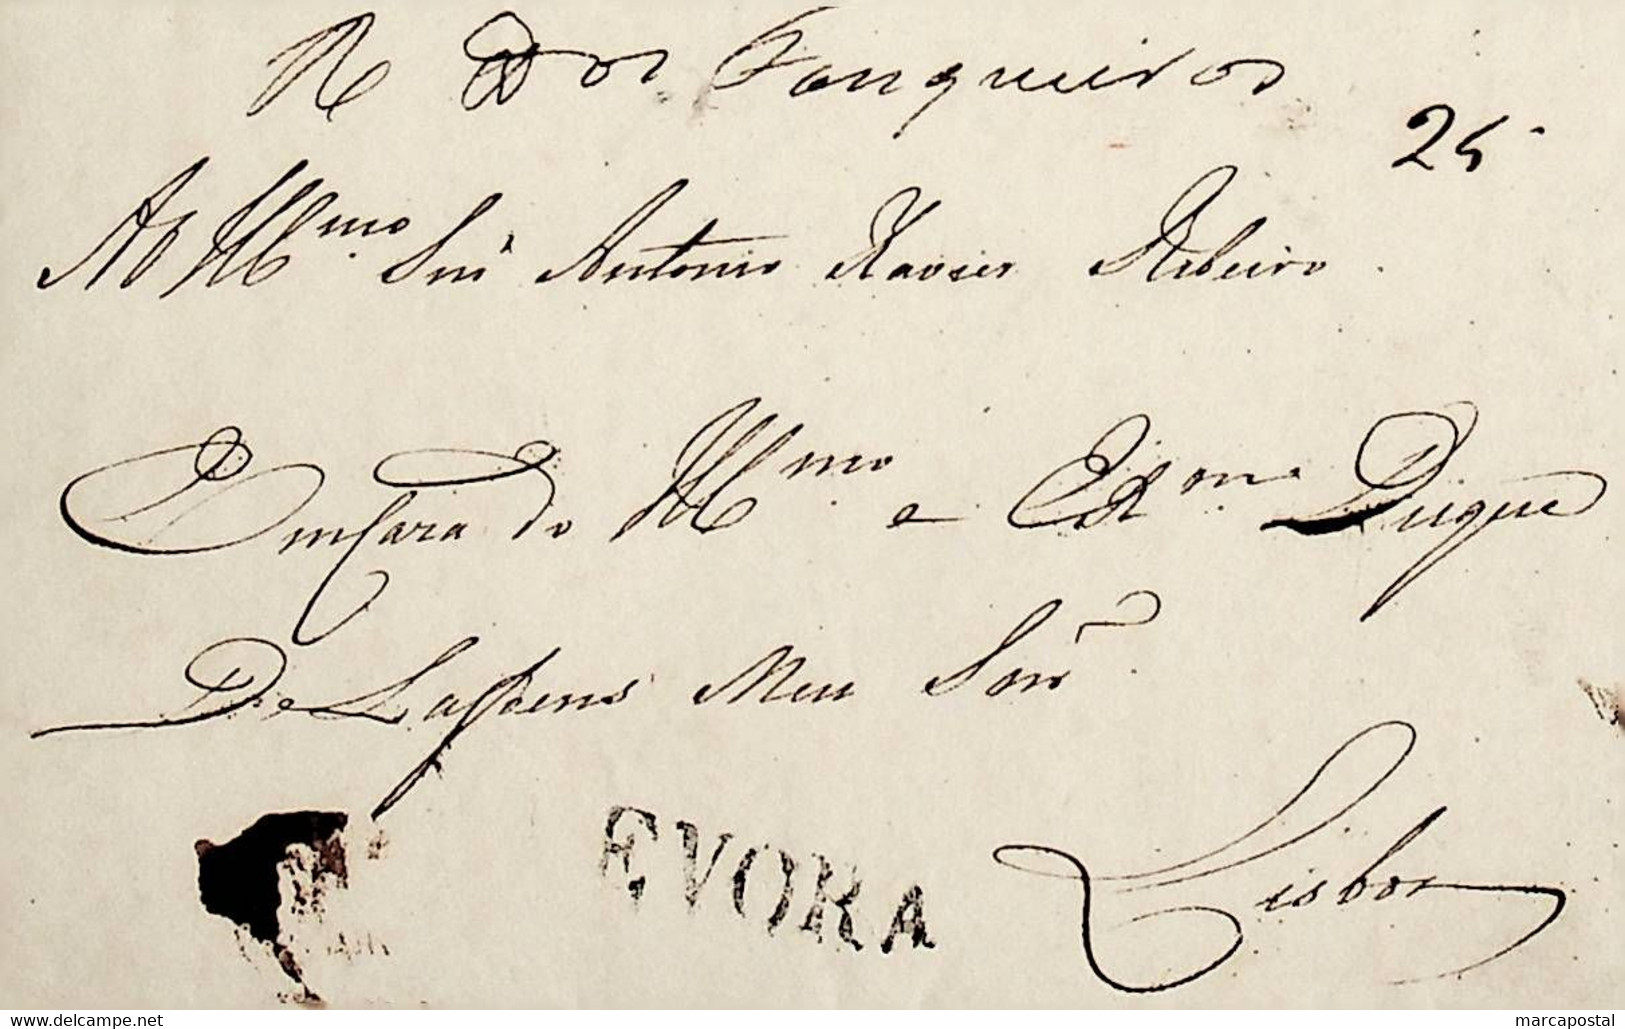 R. Dos Fanqueiros
25
Ao Illmo. Snr Antonio Xavier Ribeiro.
Em Cara do Illmo. e Exmo. Duque
De Lafoens Meu Snr.
EVORA
Lisboa
www.delcampe.net
marcapostal